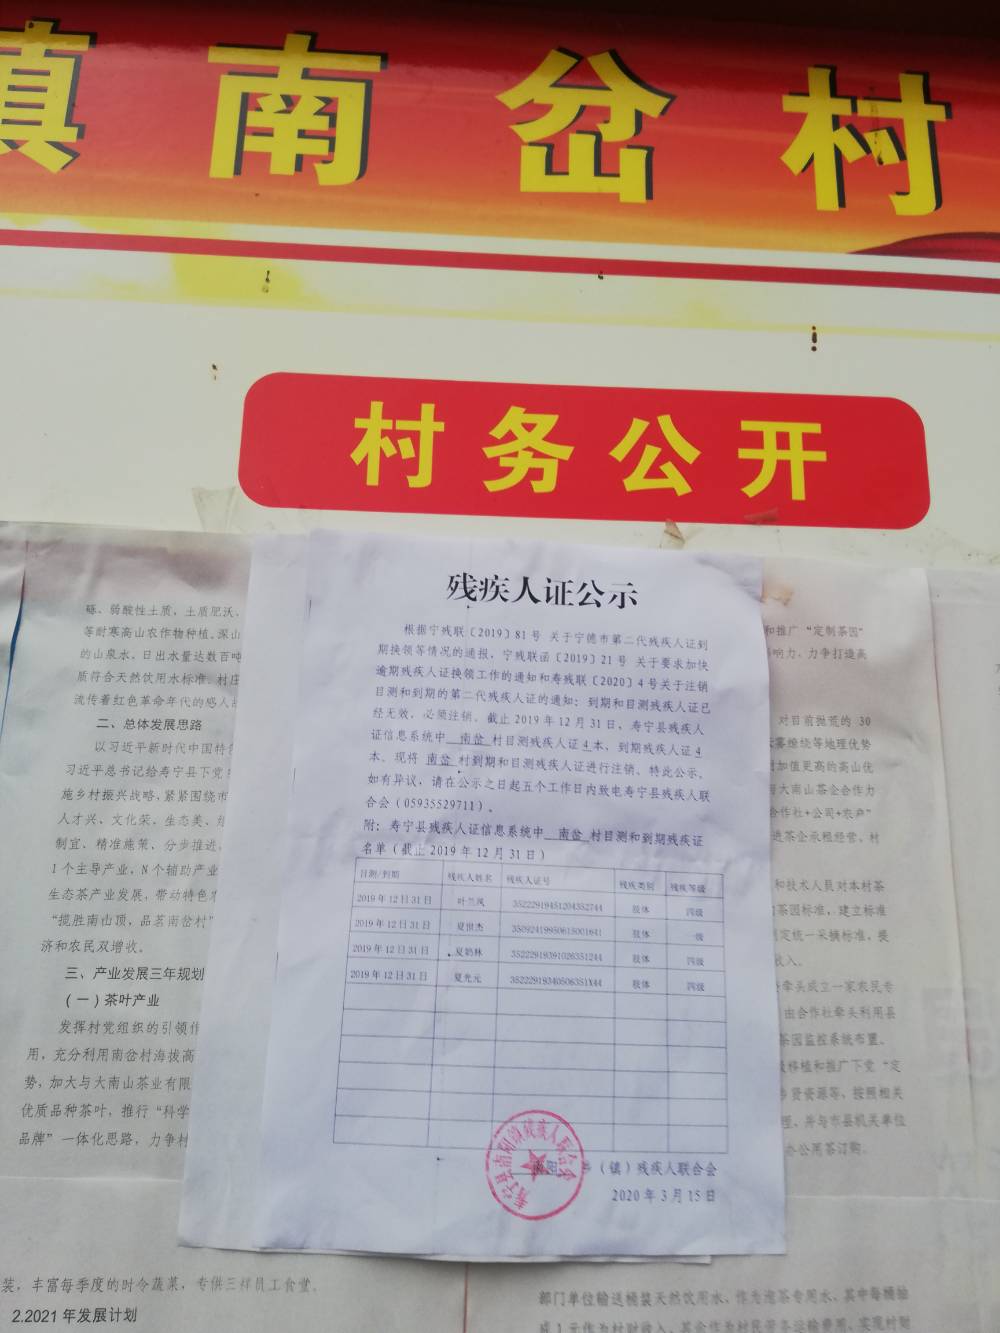 镇南岔村
村务公开
残疾人证公示
根据宁残联〔2019〕81号 关于宁德市第二代残疾人证到
期换领等情况的通报，宁残联函〔2019〕21号 关于要求加快
逾期残疾人证换领工作的通知和寿残联〔2020〕4号关于注销
目测和到期的第二代残疾人证的通知：到期和目测残疾人证已
经无效，必须注销。截止2019年12月31日，寿宁县残疾人
证信息系统中 南岔 村目测残疾人证4本，到期残疾人证4
本。现将 南岔 村到期和目测残疾人证进行注销，特此公示。
如有异议，请在公示之日起五个工作日内致电寿宁县残疾人联
合会（05935529711）。
附：寿宁县残疾人证信息系统中 南岔 村目测和到期残疾证
名单（截止2019年12月31日）
目测/到期 残疾人姓名 残疾人证号 残疾类别 残疾等级
2019年12月31日 叶兰凤 肢体 四级
2019年12月31日 夏世杰 肢体 一级
2019年12月31日 夏奶林 肢体 四级
2019年12月31日 夏光元 肢体 四级
寿宁县南阳镇残疾人联合会
南阳 乡（镇）残疾人联合会
2020年3月15日
砾、弱酸性土质，土质肥沃、
等耐寒高山农作物种植。深山
的山泉水，日出水量达数百吨
质符合天然饮用水标准。村庄
流传着红色革命年代的感人故
二、总体发展思路
以习近平新时代中国特色
习近平总书记给寿宁县下党
施乡村振兴战略，紧紧围绕市
人才兴、文化荣、生态美、
制宜、精准施策、分步推进，
1个主导产业，N个辅助产业
生态茶产业发展，带动特色农
“揽胜南山顶，品茗南岔村”
济和农民双增收。
三、产业发展三年规划
（一）茶叶产业
发挥村党组织的引领作
用，充分利用南岔村海拔高
势，加大与大南山茶业有限
优质品种茶叶，推行“科学
品牌”一体化思路，力争村
和推广“定制茶园”
影响力、力争打造高
对目前抛荒的30
云雾缭绕等地理优势
附加值更高的高山优
与大南山茶企合作力
合作社+公司+农户”
进茶企承租经营，村
和技术人员对本村茶
茶园标准，建立标准
制定统一采摘标准，提
收入。
牵头成立一家农民专
由合作社牵头利用县
茶园监控系统布置。
移植和推广下党“定
乡贤资源等，按照相关
理，并与市县机关单位
办公用茶订购。
装，丰富每季度的时令蔬菜，专供三祥员工食堂。
2.2021年发展计划
部门单位输送桶装天然饮用水、作为泡茶专用水，其中每桶抽
成1元作为村财收入，